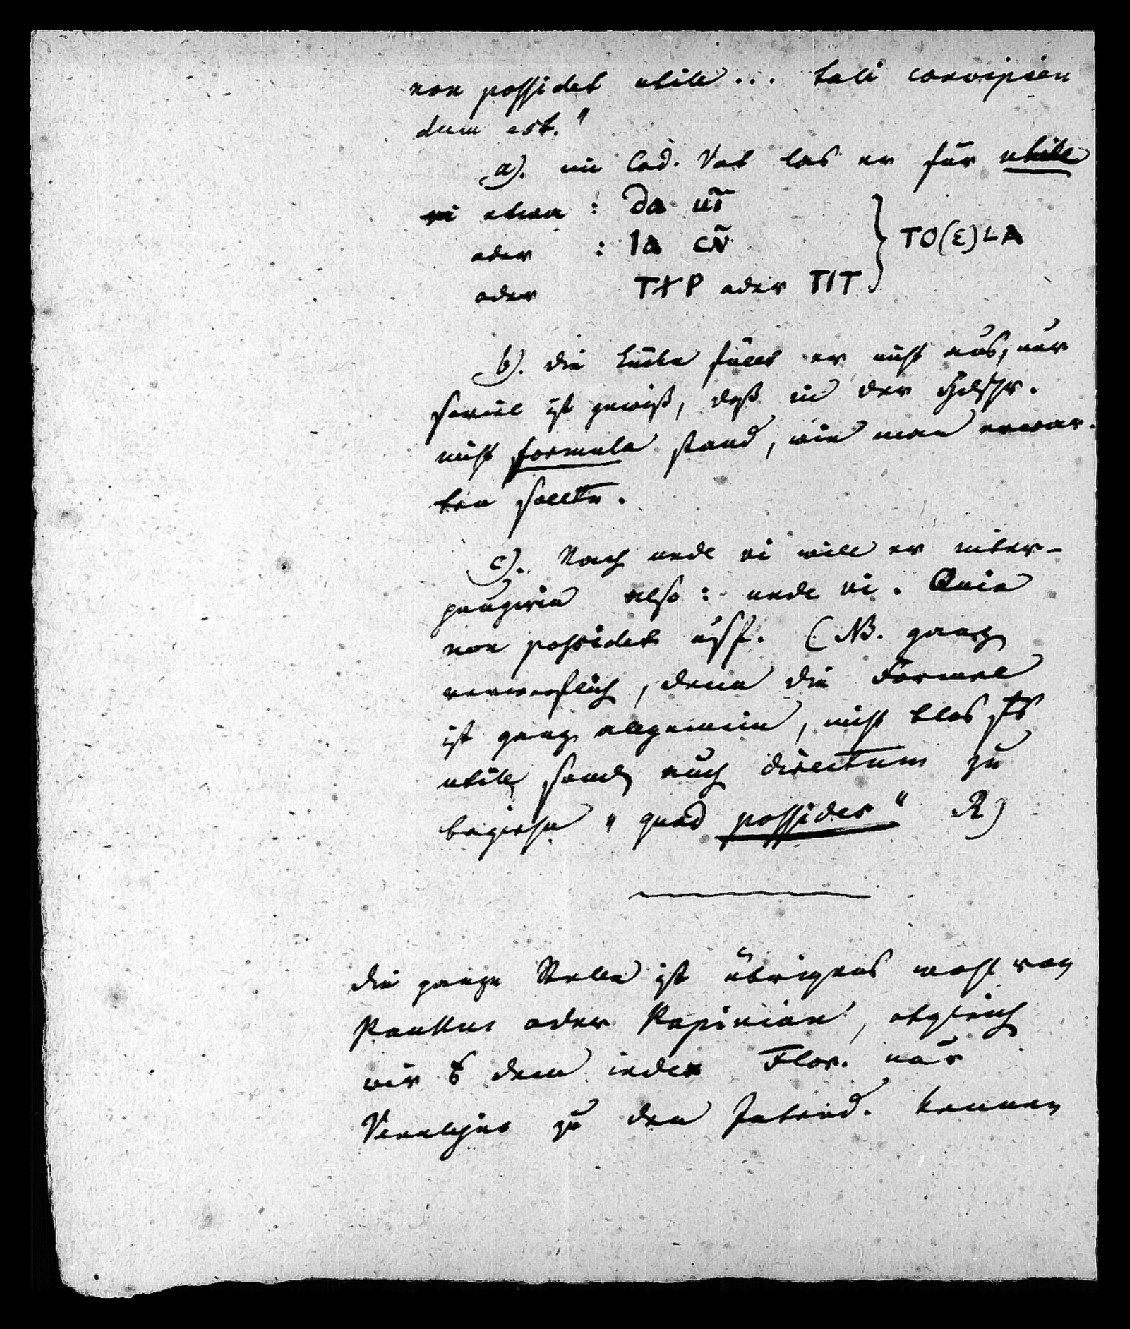 non possidet utile ... tali concipien
dum est."
a). im Cod. Vat las er für utile
vi etwa : da uti
oder : la cñ } TO(E)LA
oder TXP oder TIT
b). die Lücke füllt er nicht aus, nur
soviel ist gewiß, daß in der Hdschr.
nicht formula stand, wie man erwar-
ten sollte.
c). Nach unde vi will er inter-
pungiren also: unde vi. Quia
non possidet usf. (NB. ganz
verwerflich, denn die Formel
ist ganz allgemein, nicht blos fs
utile sond auch directum zu
beziehn "quod possides" R)
die ganze Stelle ist übrigens wohl von
Paullus oder Papinian, obgleich
wir dem index Flor. nur
Venulejus zu den Interd. kennen